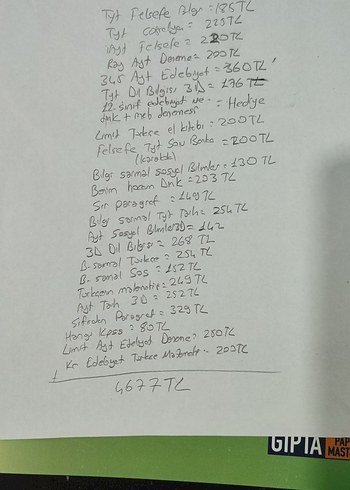 Tyt Felsefe Bilgi = 185TL
Tyt Coğrafya = 225TL
Ayt Felsefe = 220TL
Ray Ayt Deneme = 200TL
345 Ayt Edebiyat = 360TL
Tyt Dil Bilgisi 3D = 176TL
12. sınıf edebiyat ve = Hediye
dnk + meb denemesi
Limit Türkçe el kitabı = 200TL
Felsefe Tyt Soru Banka = 200TL
(karaktr)
Bilgi sarmal sosyal Bilimler = 130 TL
Benim hocam Dnk = 203 TL
Sıfır paragraf = 149TL
Bilgi sarmal Tyt Tarih = 254TL
Ayt Sosyal Bilimler 3D = 142
3D Dil Bilgisi = 268 TL
B-sarmal Türkçe = 254 TL
B-sarmal Sos = 152TL
Türkçenin matematiği = 249TL
Ayt Tarih 3D = 252TL
Sıfırdan Paragraf = 329TL
Hangi KPSS = 80TL
Limit Ayt Edebiyat Deneme = 280TL
Kr Edebiyat Türkçe Matematik = 200TL
4677TL
GIPTA
PAP
MAST